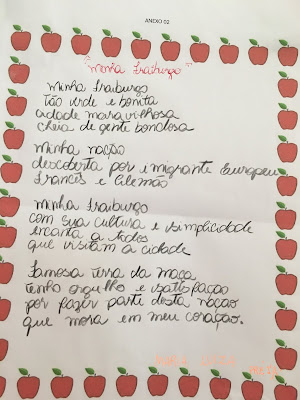 ANEXO 02
Minha Fraiburgo
Minha Fraiburgo
tão verde e bonita
cidade maravilhosa
cheia de gente bondosa
Minha nação
descoberta por emigrante Europeu
Francês e Alemão
Minha Fraiburgo
com sua cultura e simplicidade
encanta a todos
que visitam a cidade
Famosa terra da maçã
tenho orgulho e satisfação
por fazer parte desta nação
que mora em meu coração.